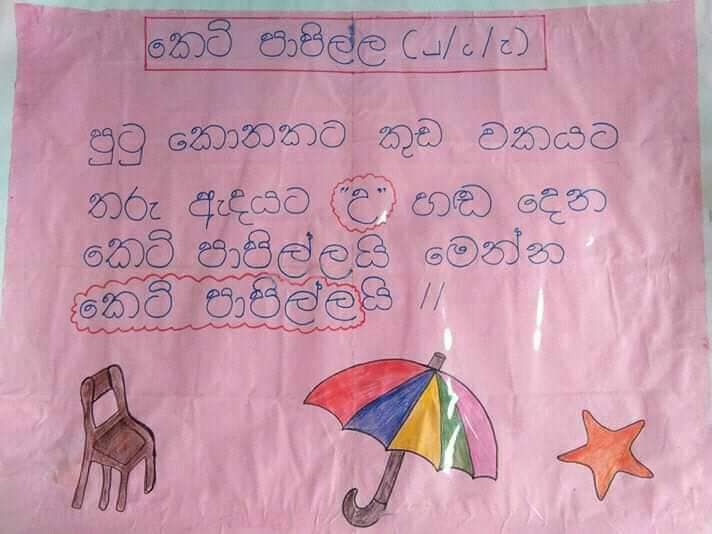 කෙටි පාපිල්ල (ු/ු/ෘ)
පුටු කොනකට කුඩ වකයට
තරු ඇදයට "උ" හඬ දෙන
කෙටි පාපිල්ලයි මෙන්න
කෙටි පාපිල්ලයි //